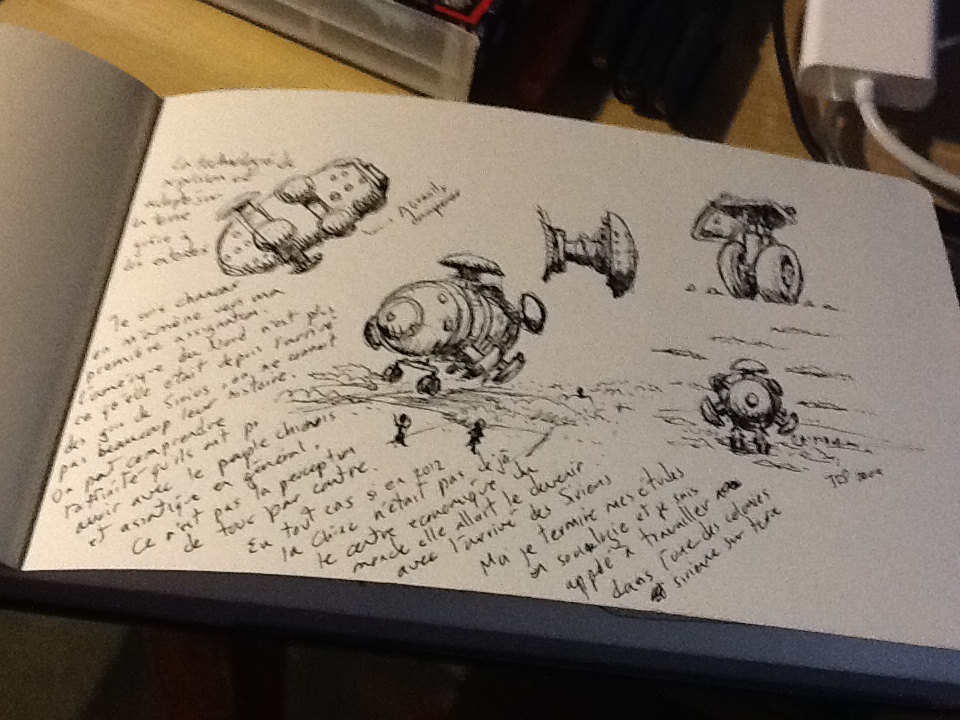 La technologie de
répulsion est
adapté sur
la terre
grâce à
Je suis chanceux
en                     vers ma
première assignation.
L'amérique du Nord n'est plus
ce qu'elle était depuis l'arrivé
des gens de Sirius, on ne connait
pas beaucoup leur histoire.
On peut comprendre
l'affinité qu'ils ont pu
avoir avec le peuple chinois
et asiatique en général.
Ce n'est pas la perception
de tous par contre.
En tout cas si en 2012
la Chine n'était pas déjà
le centre économique du
monde elle allait le devenir
avec l'arrivé des Siriens
Moi je termine mes études
en sociologie et je suis
appelé à travailler
dans l'une des colonies
sirienne sur terre